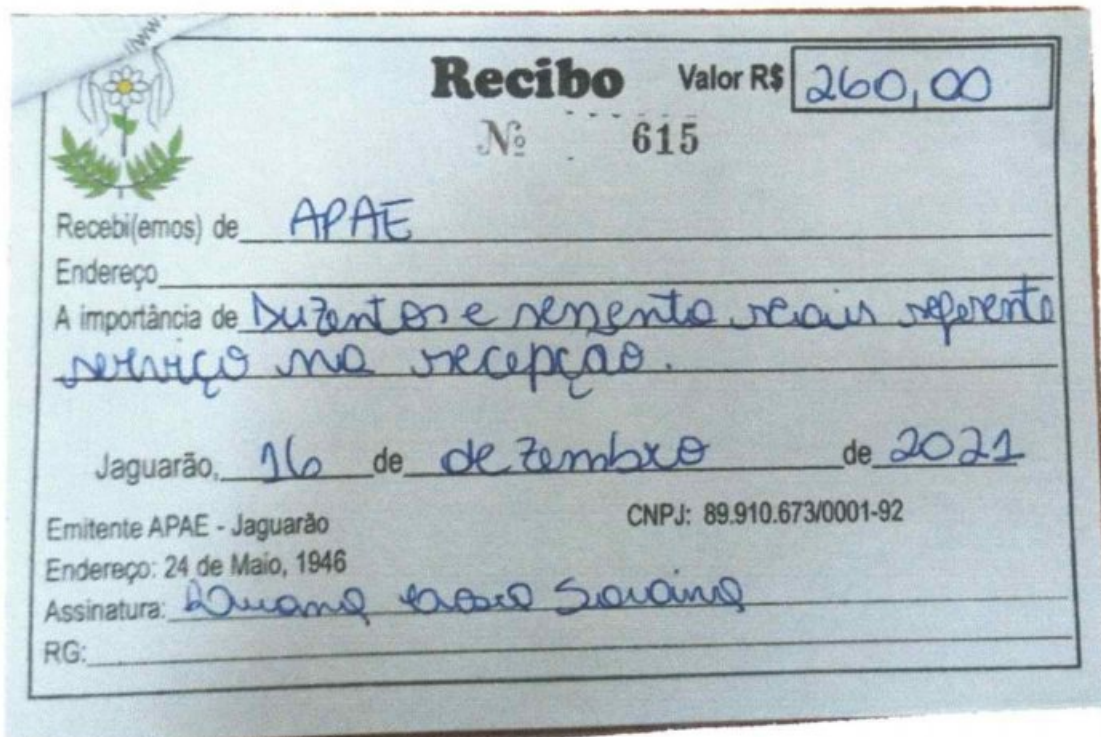 www.
Recibo Valor R$ 260,00
Nº 615
Recebi(emos) de APAE
Endereço
A importância de Duzentos e sessenta reais referente
serviço na recepção.
Jaguarão, 16 de dezembro de 2021
Emitente APAE - Jaguarão CNPJ: 89.910.673/0001-92
Endereço: 24 de Maio, 1946
Assinatura:
RG: